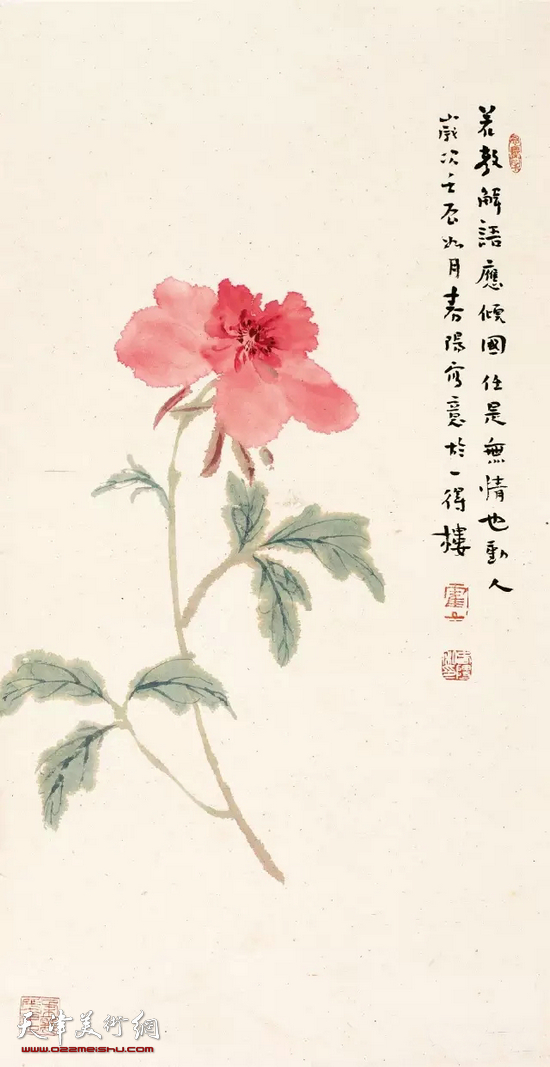 若教解語應傾國任是無情也動人
歲次壬辰如月春陽寫意於一得樓
天津美術網
www.022meishu.com